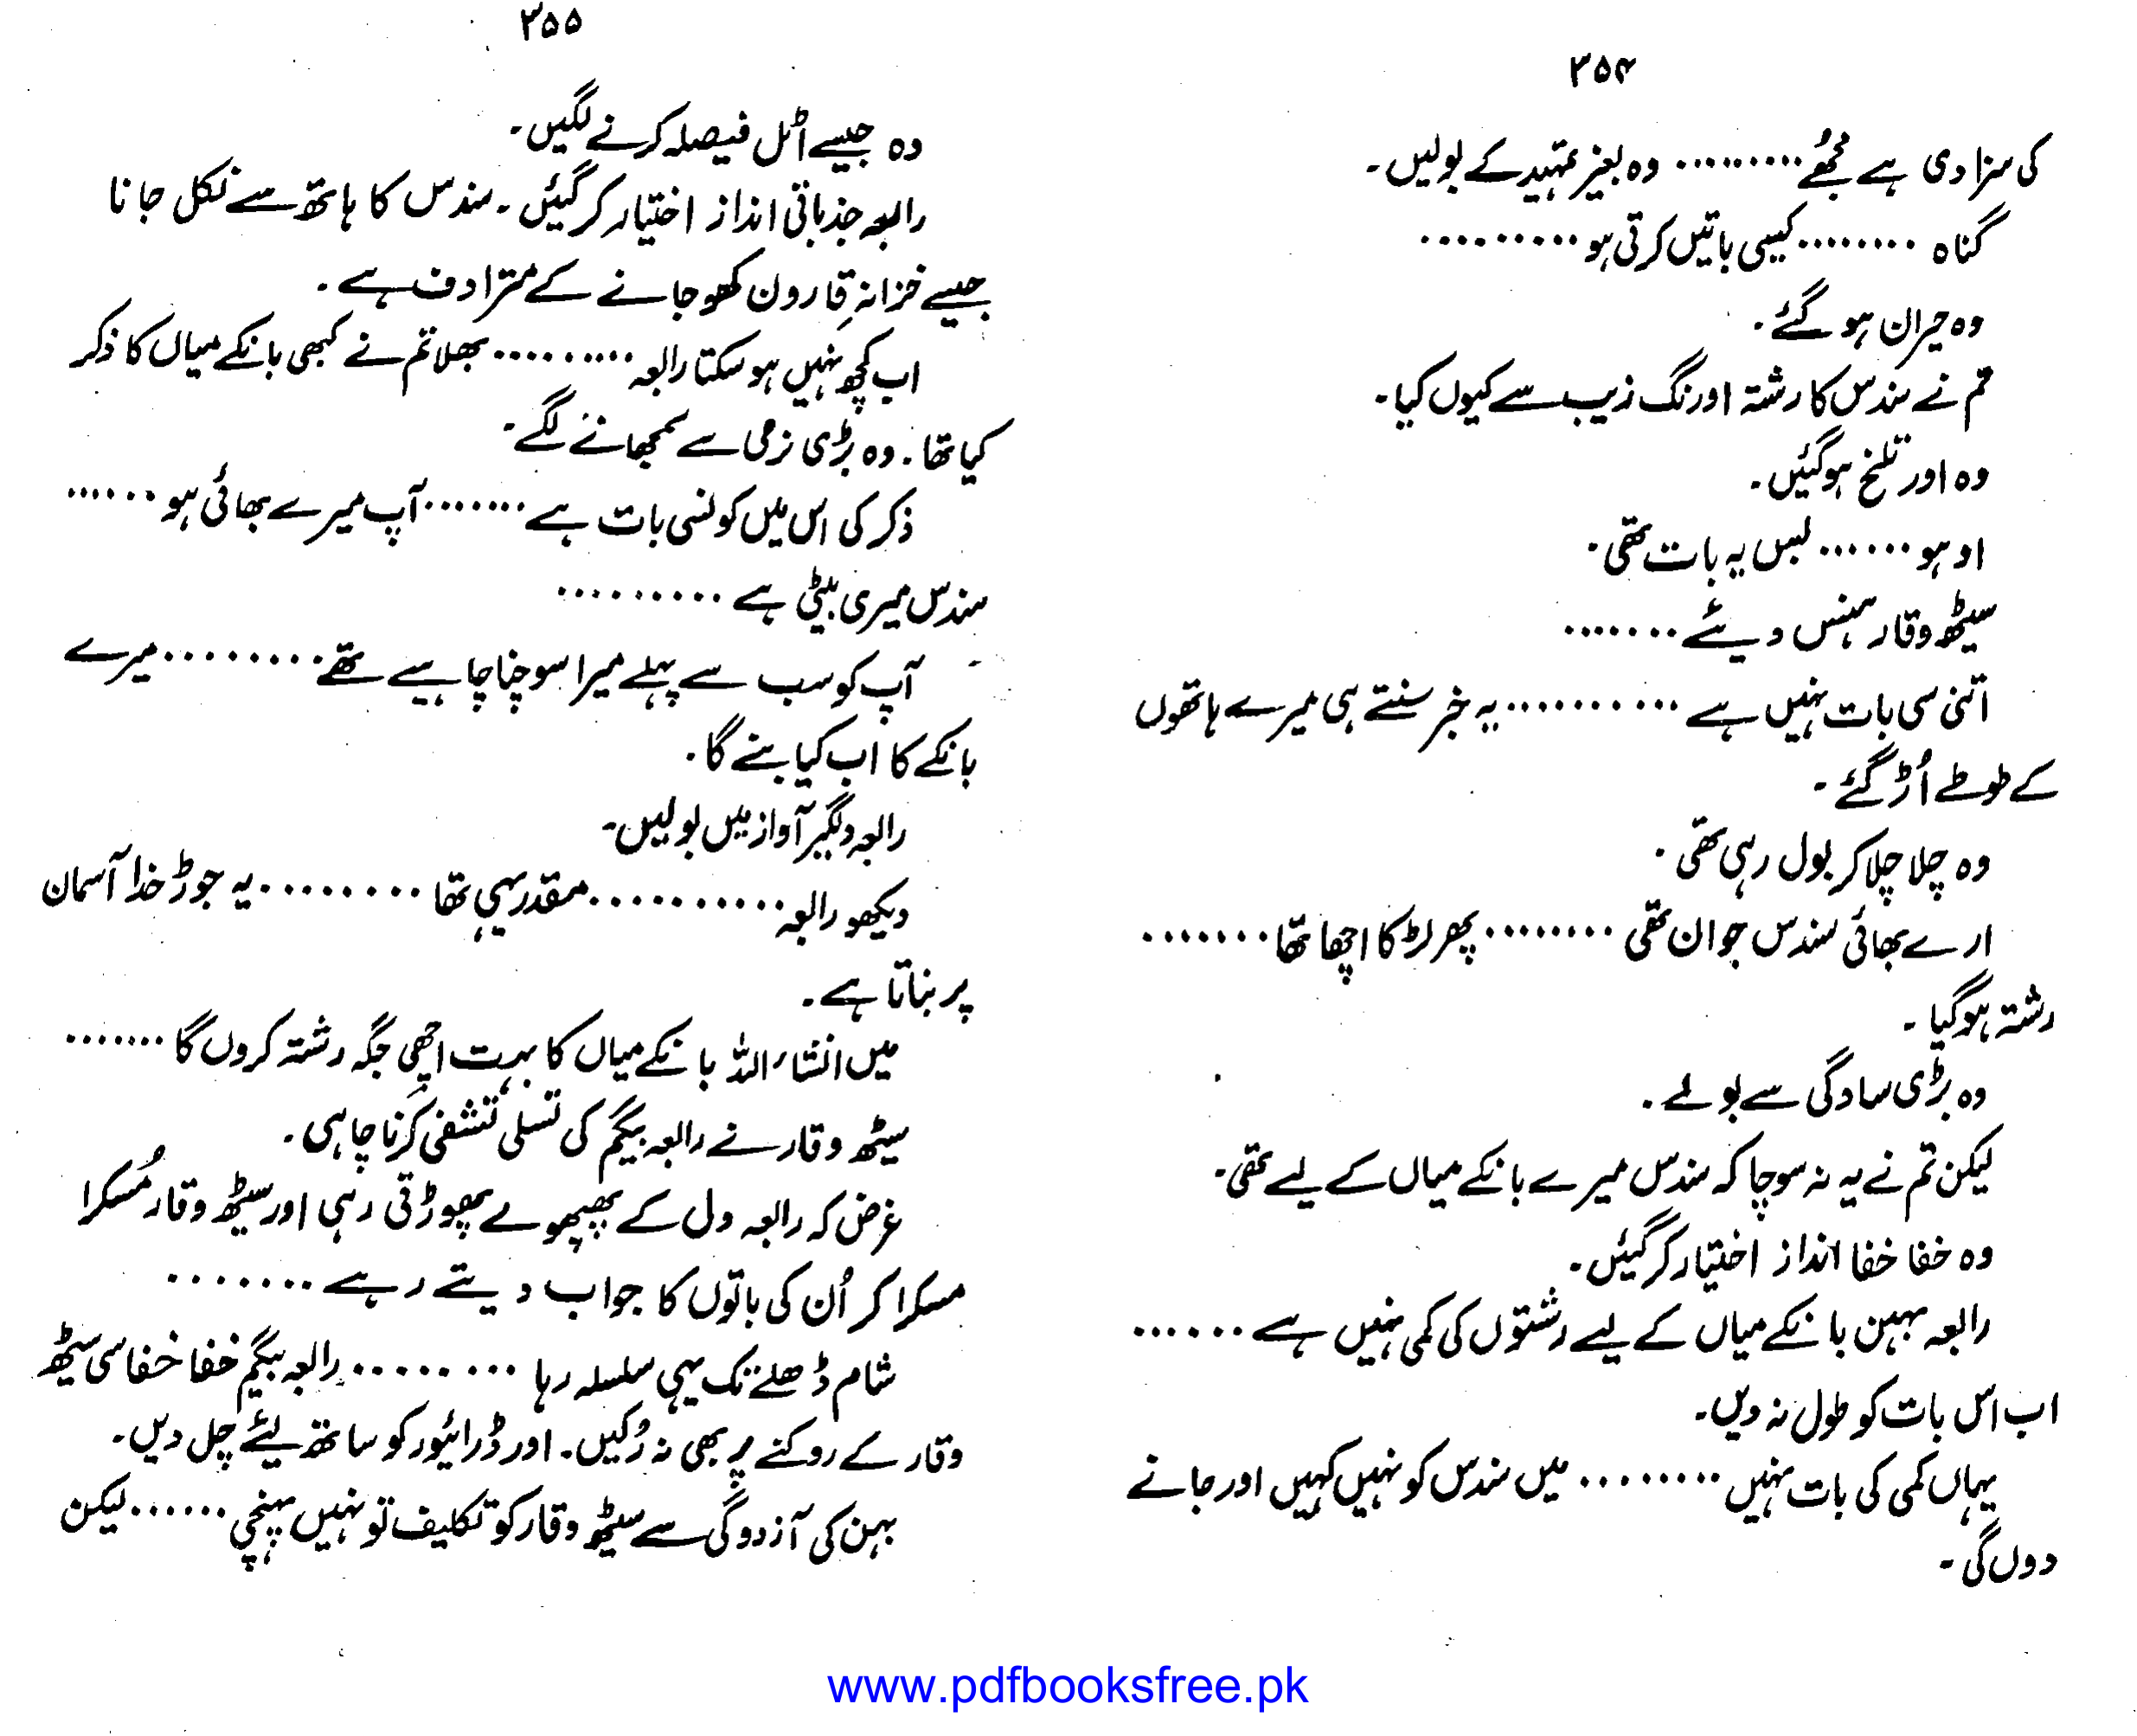 ۳۵۴
کی سزا دی ہے مجھے ......... وہ بغیر تمہید کے بولیں۔
گناہ ........ کیسی باتیں کرتی ہو .........
وہ حیران ہو گئے۔
تم نے سندس کا رشتہ اورنگ زیب سے کیوں کیا۔
وہ اور تلخ ہو گئیں۔
اوہو ...... بس یہ بات تھی۔
سیٹھ وقار ہنس دیئے .......
اتنی سی بات نہیں ہے .......... یہ خبر سنتے ہی میرے ہاتھوں
کے طوطے اُڑ گئے۔
وہ چلا چلا کر بول رہی تھی۔
ارے بھائی سندس جوان تھی ........ پھر لڑکا اچھا تھا .......
رشتہ ہو گیا۔
وہ بڑی سادگی سے بولے۔
لیکن تم نے یہ نہ سوچا کہ سندس میرے بانکے میاں کے لیے تھی۔
وہ خفا خفا انداز اختیار کر گیئں۔
رابعہ بہین بانکے میاں کے لیے رشتوں کی کمی نہیں ہے ......
اب اس بات کو طول نہ دیں۔
یہاں کمی کی بات نہیں ........ میں سندس کو نہیں کہیں اور جانے
دوں گی۔
۳۵۵
وہ جیسے اٹل فیصلہ کرنے لگیں۔
رابعہ جذباتی انداز اختیار کر گیئں۔ سندس کا ہاتھ سے نکل جانا
جیسے خزانہِ قارون کھو جانے کے مترادف ہے۔
اب کچھ نہیں ہو سکتا رابعہ ......... بھلا تم نے کبھی بانکے میاں کا ذکر
کیا تھا۔ وہ بڑی نرمی سے سمجھانے لگے۔
ذکر کی اس میں کونسی بات ہے ....... آپ میرے بھائی ہو ......
سندس میری بیٹی ہے .........
آپ کو سب سے پہلے میرا سوچنا چاہیے تھے ........ میرے
بانکے کا اب کیا بنے گا۔
رابعہ دلگیر آواز میں بولیں۔
دیکھو رابعہ .......... مقدر یہی تھا ........ یہ جوڑ خدا آسمان
پر بناتا ہے۔
میں انشاء اللہ بانکے میاں کا بہت اچھی جگہ رشتہ کروں گا .......
سیٹھ وقار نے رابعہ بیگم کی تسلی تشفی کرنا چاہی۔
غرض کہ رابعہ دل کے پھپھولے پھوڑتی رہی اور سیٹھ وقار مُسکرا
مسکرا کر اُن کی باتوں کا جواب دیتے رہے .......
شام ڈھلے تک یہی سلسلہ رہا ........ رابعہ بیگم خفا خفا سی سیٹھ
وقار کے روکنے پر بھی نہ رُکیں۔ اور ڈرائیور کو ساتھ لیئے چل دیں۔
بہن کی آزدوگی سے سیٹھ وقار کو تکلیف تو نہیں پہنچی ...... لیکن
www.pdfbooksfree.pk